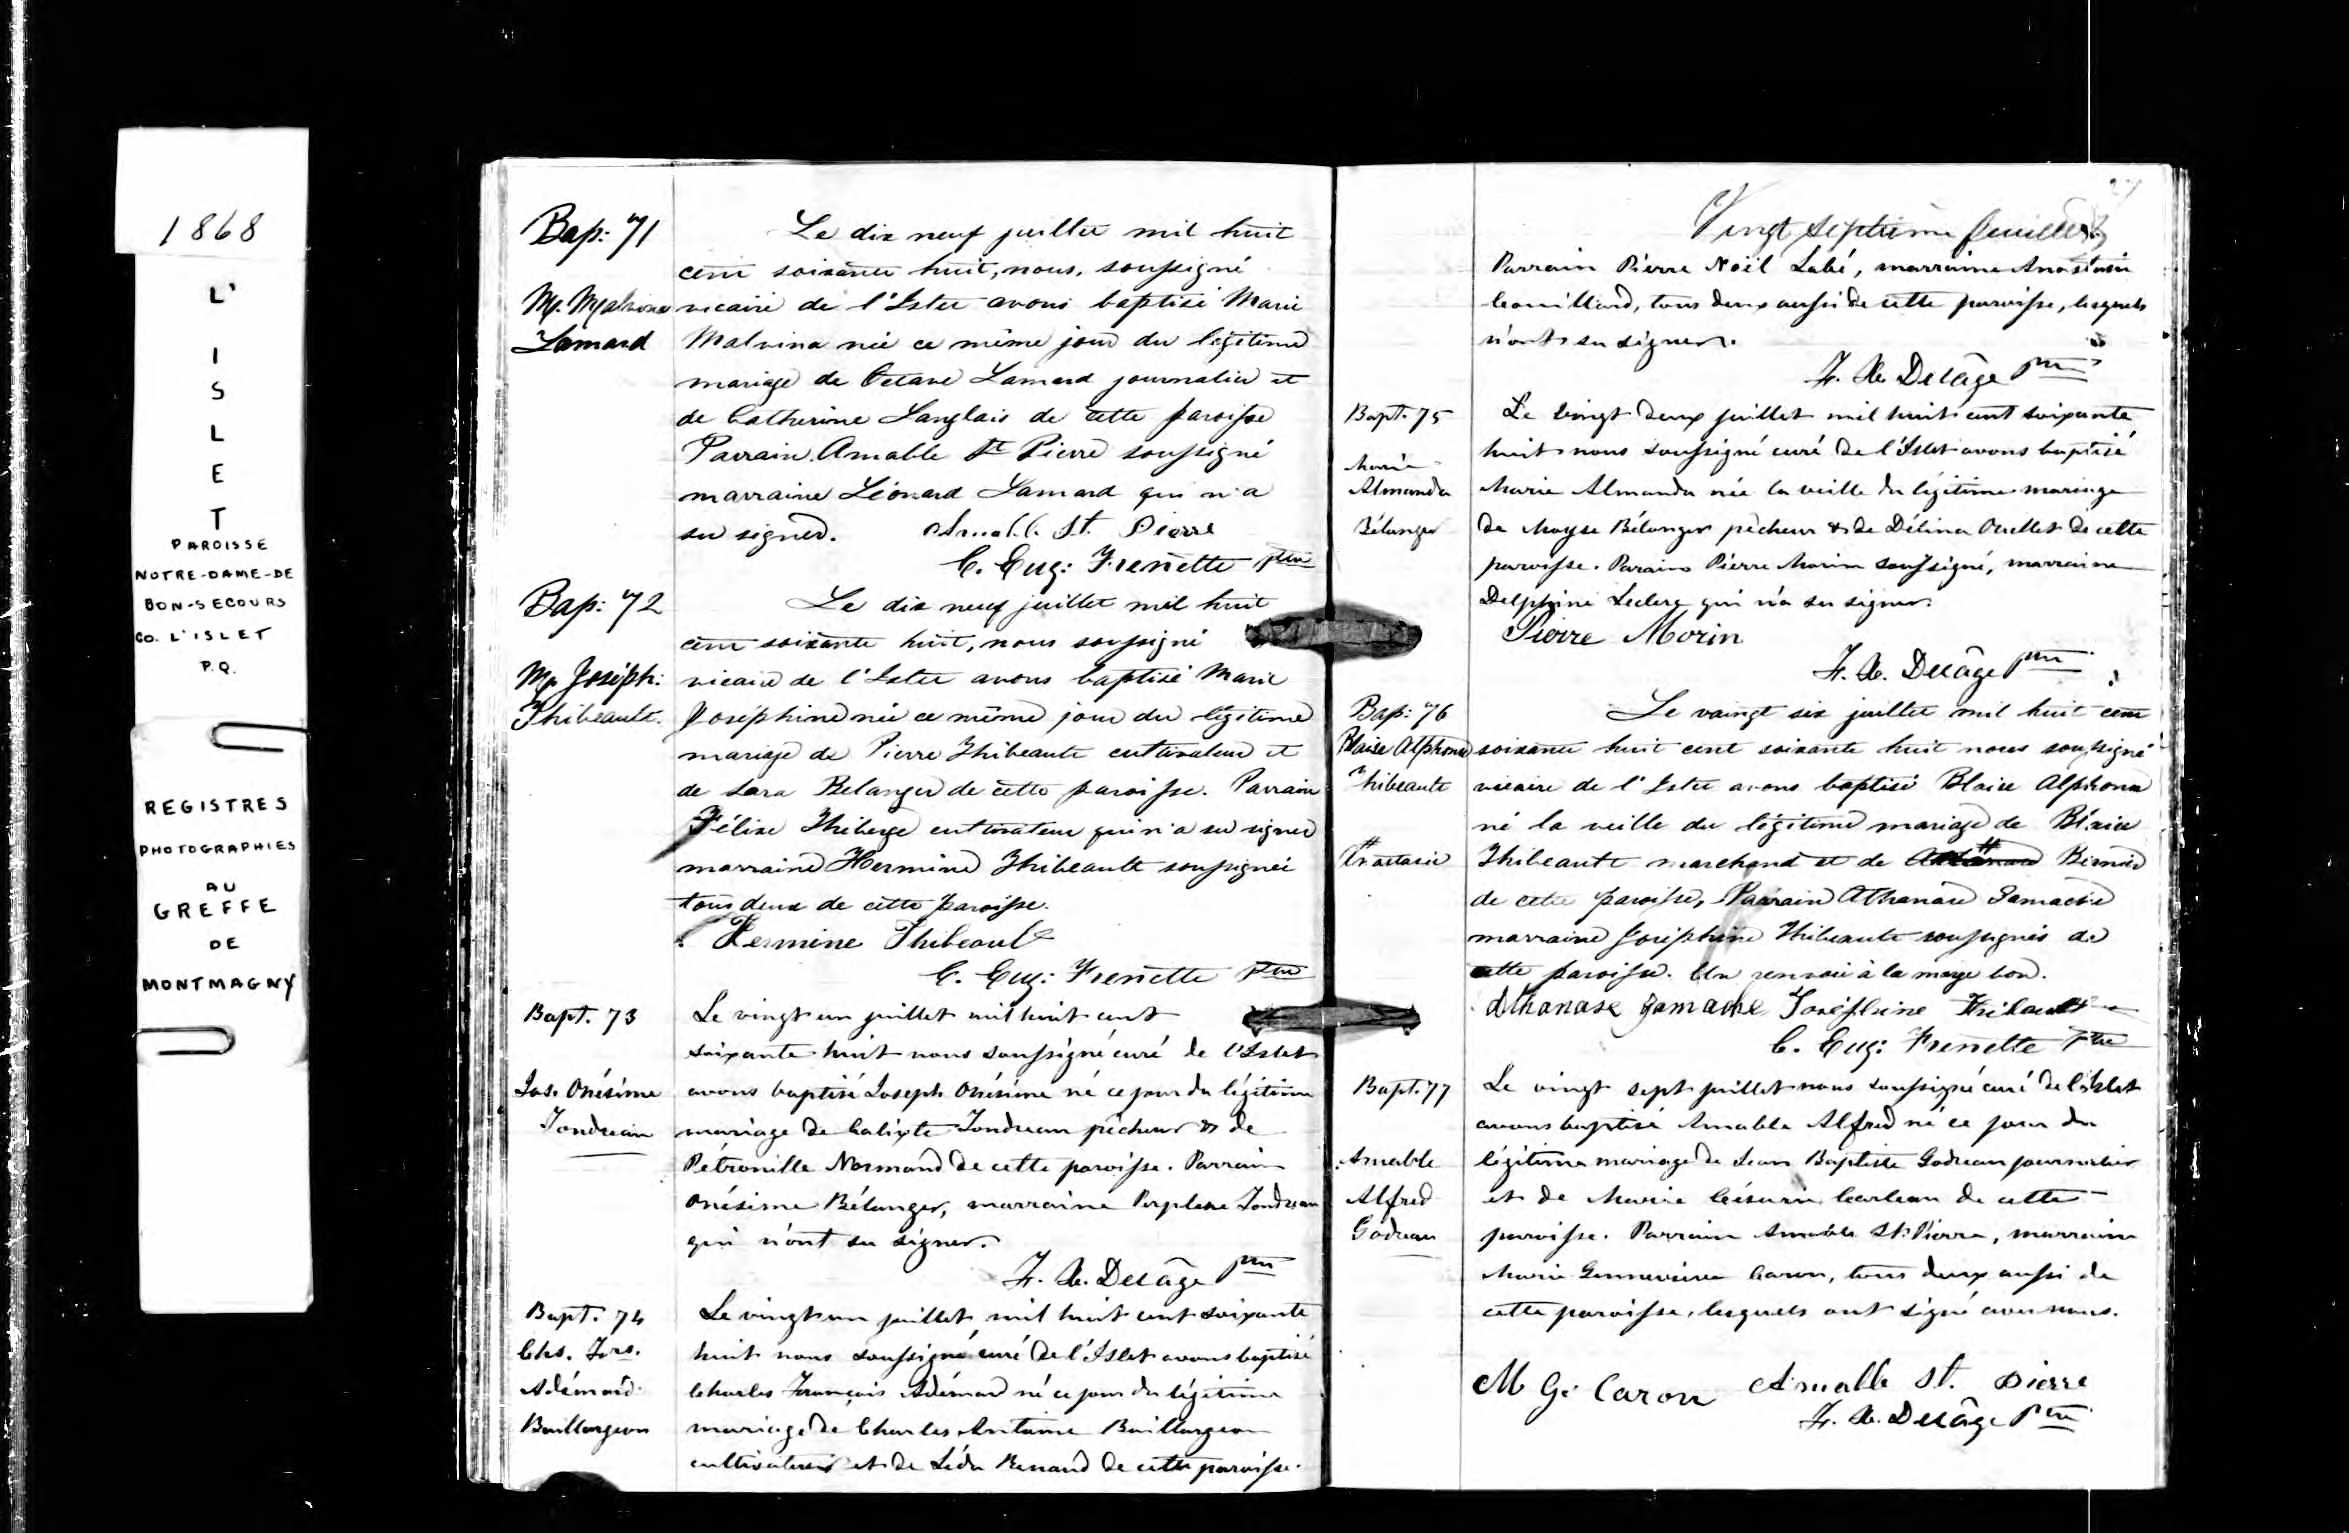 1868
L'
I
S
L
E
T
PAROISSE
NOTRE-DAME-DE
BON-SECOURS
CO. L'ISLET
P.Q.
REGISTRES
PHOTOGRAPHIES
AU
GREFFE
DE
MONTMAGNY
Bap: 71
Mie Malvina
Lamard
Le dix neuf juillet mil huit
cent soixante huit, nous, soussigné
vicaire de l'Islet avons baptisé Marie
Malvina née ce même jour du légitime
mariage de Octave Lamard journalier et
de Catherine Langlais de cette paroisse
Parrain Amable St Pierre soussigné
marraine Léonard Lamard qui n'a
su signer. Amable St. Pierre
C. Eug: Frenette Ptre
Bap: 72
Mie Joséph:
Thibeault.
Le dix neuf juillet mil huit
cent soixante huit, nous soussigné
vicaire de l'Islet avons baptisé Marie
Joséphine née ce même jour du légitime
mariage de Pierre Thibeault cultivateur et
de Sara Belanger de cette paroisse. Parrain
Félix Théberge cultivateur qui n'a su signer
marraine Hermine Thibeault soussignée
tous deux de cette paroisse.
Hermine Thibeault
C. Eug: Frenette Ptre
Bapt. 73
Jos. Onésime
Tondreau
Le vingt un juillet mil huit cent
soixante huit nous soussigné curé de l'Islet
avons baptisé Joseph Onésime né ce jour du légitime
mariage de Calixte Tondreau pêcheur & de
Pétronille Normand de cette paroisse. Parrain
Onésime Bélanger, marraine Tondreau
qui n'ont su signer.
F. X. Delâge Ptre
Bapt. 74
Chs. Frs.
Adémard
Baillargeon
Le vingt un juillet mil huit cent soixante
huit nous soussigné curé de l'Islet avons baptisé
Charles François Adémard né ce jour du légitime
mariage de Charles Antoine Baillargeon
cultivateur et de Léda Renaud de cette paroisse.
27
Vingt septième feuillet
Parrain Pierre Noël Labé, marraine Anastasie
Couillard, tous deux aussi de cette paroisse, lesquels
n'ont su signer.
F. X. Delâge Ptre
Bapt. 75
Marie
Almanda
Bélanger
Le vingt deux juillet mil huit cent soixante
huit nous soussigné curé de l'Islet avons baptisé
Marie Almanda née la veille du légitime mariage
de Moyse Bélanger pêcheur & de Délina Ouellet de cette
paroisse. Parain Pierre Morin soussigné, marraine
Delphine Leclerc qui n'a su signer.
Pierre Morin
F. X. Delâge Ptre
Bap: 76
Blaise Alphonse
Thibeault
Anastasie
Le vaingt six juillet mil huit cent
soixante huit cent soixante huit nous soussigné
vicaire de l'Islet avons baptisé Blaise Alphonse
né la veille du légitime mariage de Blaise
Thibeault marchand et de Bernier
de cette paroisse, Parrain Athanase Gamache
marraine Joséphine Thibeault soussignés de
cette paroisse. Un renvoi à la marge bon.
Athanase Gamache Joséphine Thibault
C. Eug: Frenette Ptre
Bapt. 77
Amable
Alfred
Godreau
Le vingt sept juillet nous soussigné curé de l'Islet
avons baptisé Amable Alfred né ce jour du
légitime mariage de Jean Baptiste Godreau journalier
et de Marie Césarie Carleau de cette
paroisse. Parrain Amable St. Pierre, marraine
Marie Genneviève Caron, tous deux aussi de
cette paroisse, lesquels ont signé avec nous.
M G. Caron Amable St. Pierre
F. X. Delâge Ptre